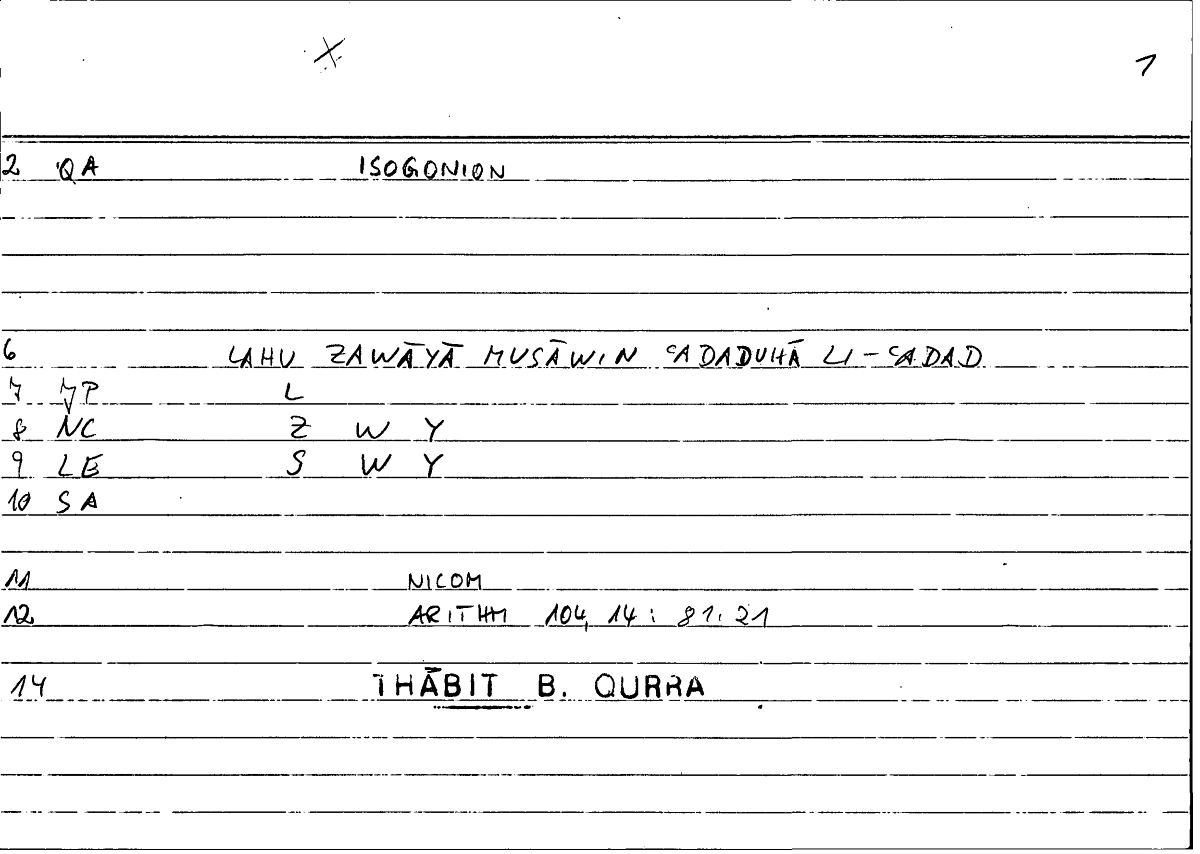 1
2 QA ISOGONION
6 LAHU ZAWĀYĀ MUSĀWIN ʿADADUHĀ LI-ʿADAD
7 JP L
8 NC Z W Y
9 LE S W Y
10 SA
11 NICOM
12 ARITHM 104, 14 : 81, 21
14 THĀBIT B. QURRA